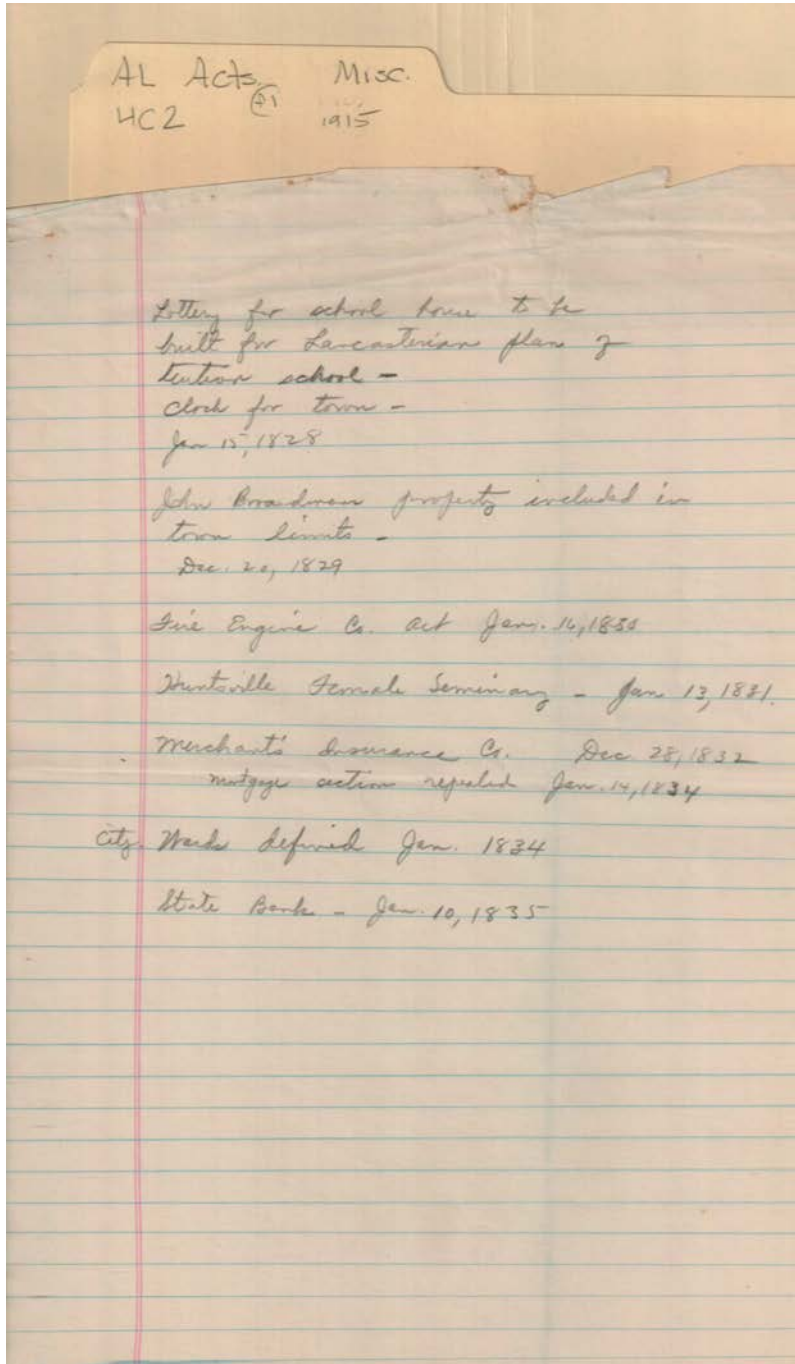 AL Acts Misc.
4C2 #1 1915
Lottery for school house to be
built for Lancasterian plan of
tuition school -
clock for town -
Jan 15, 1828
John Boardman property included in
town limits -
Dec. 20, 1829
Fire Engine Co. Act Jan. 16, 1830
Huntsville Female Seminary - Jan 13, 1831.
Merchant's Insurance Co. Dec. 28, 1832
mortgage action repealed Jan. 14, 1834
City Wards defined Jan. 1834
State Bank - Jan. 10, 1835